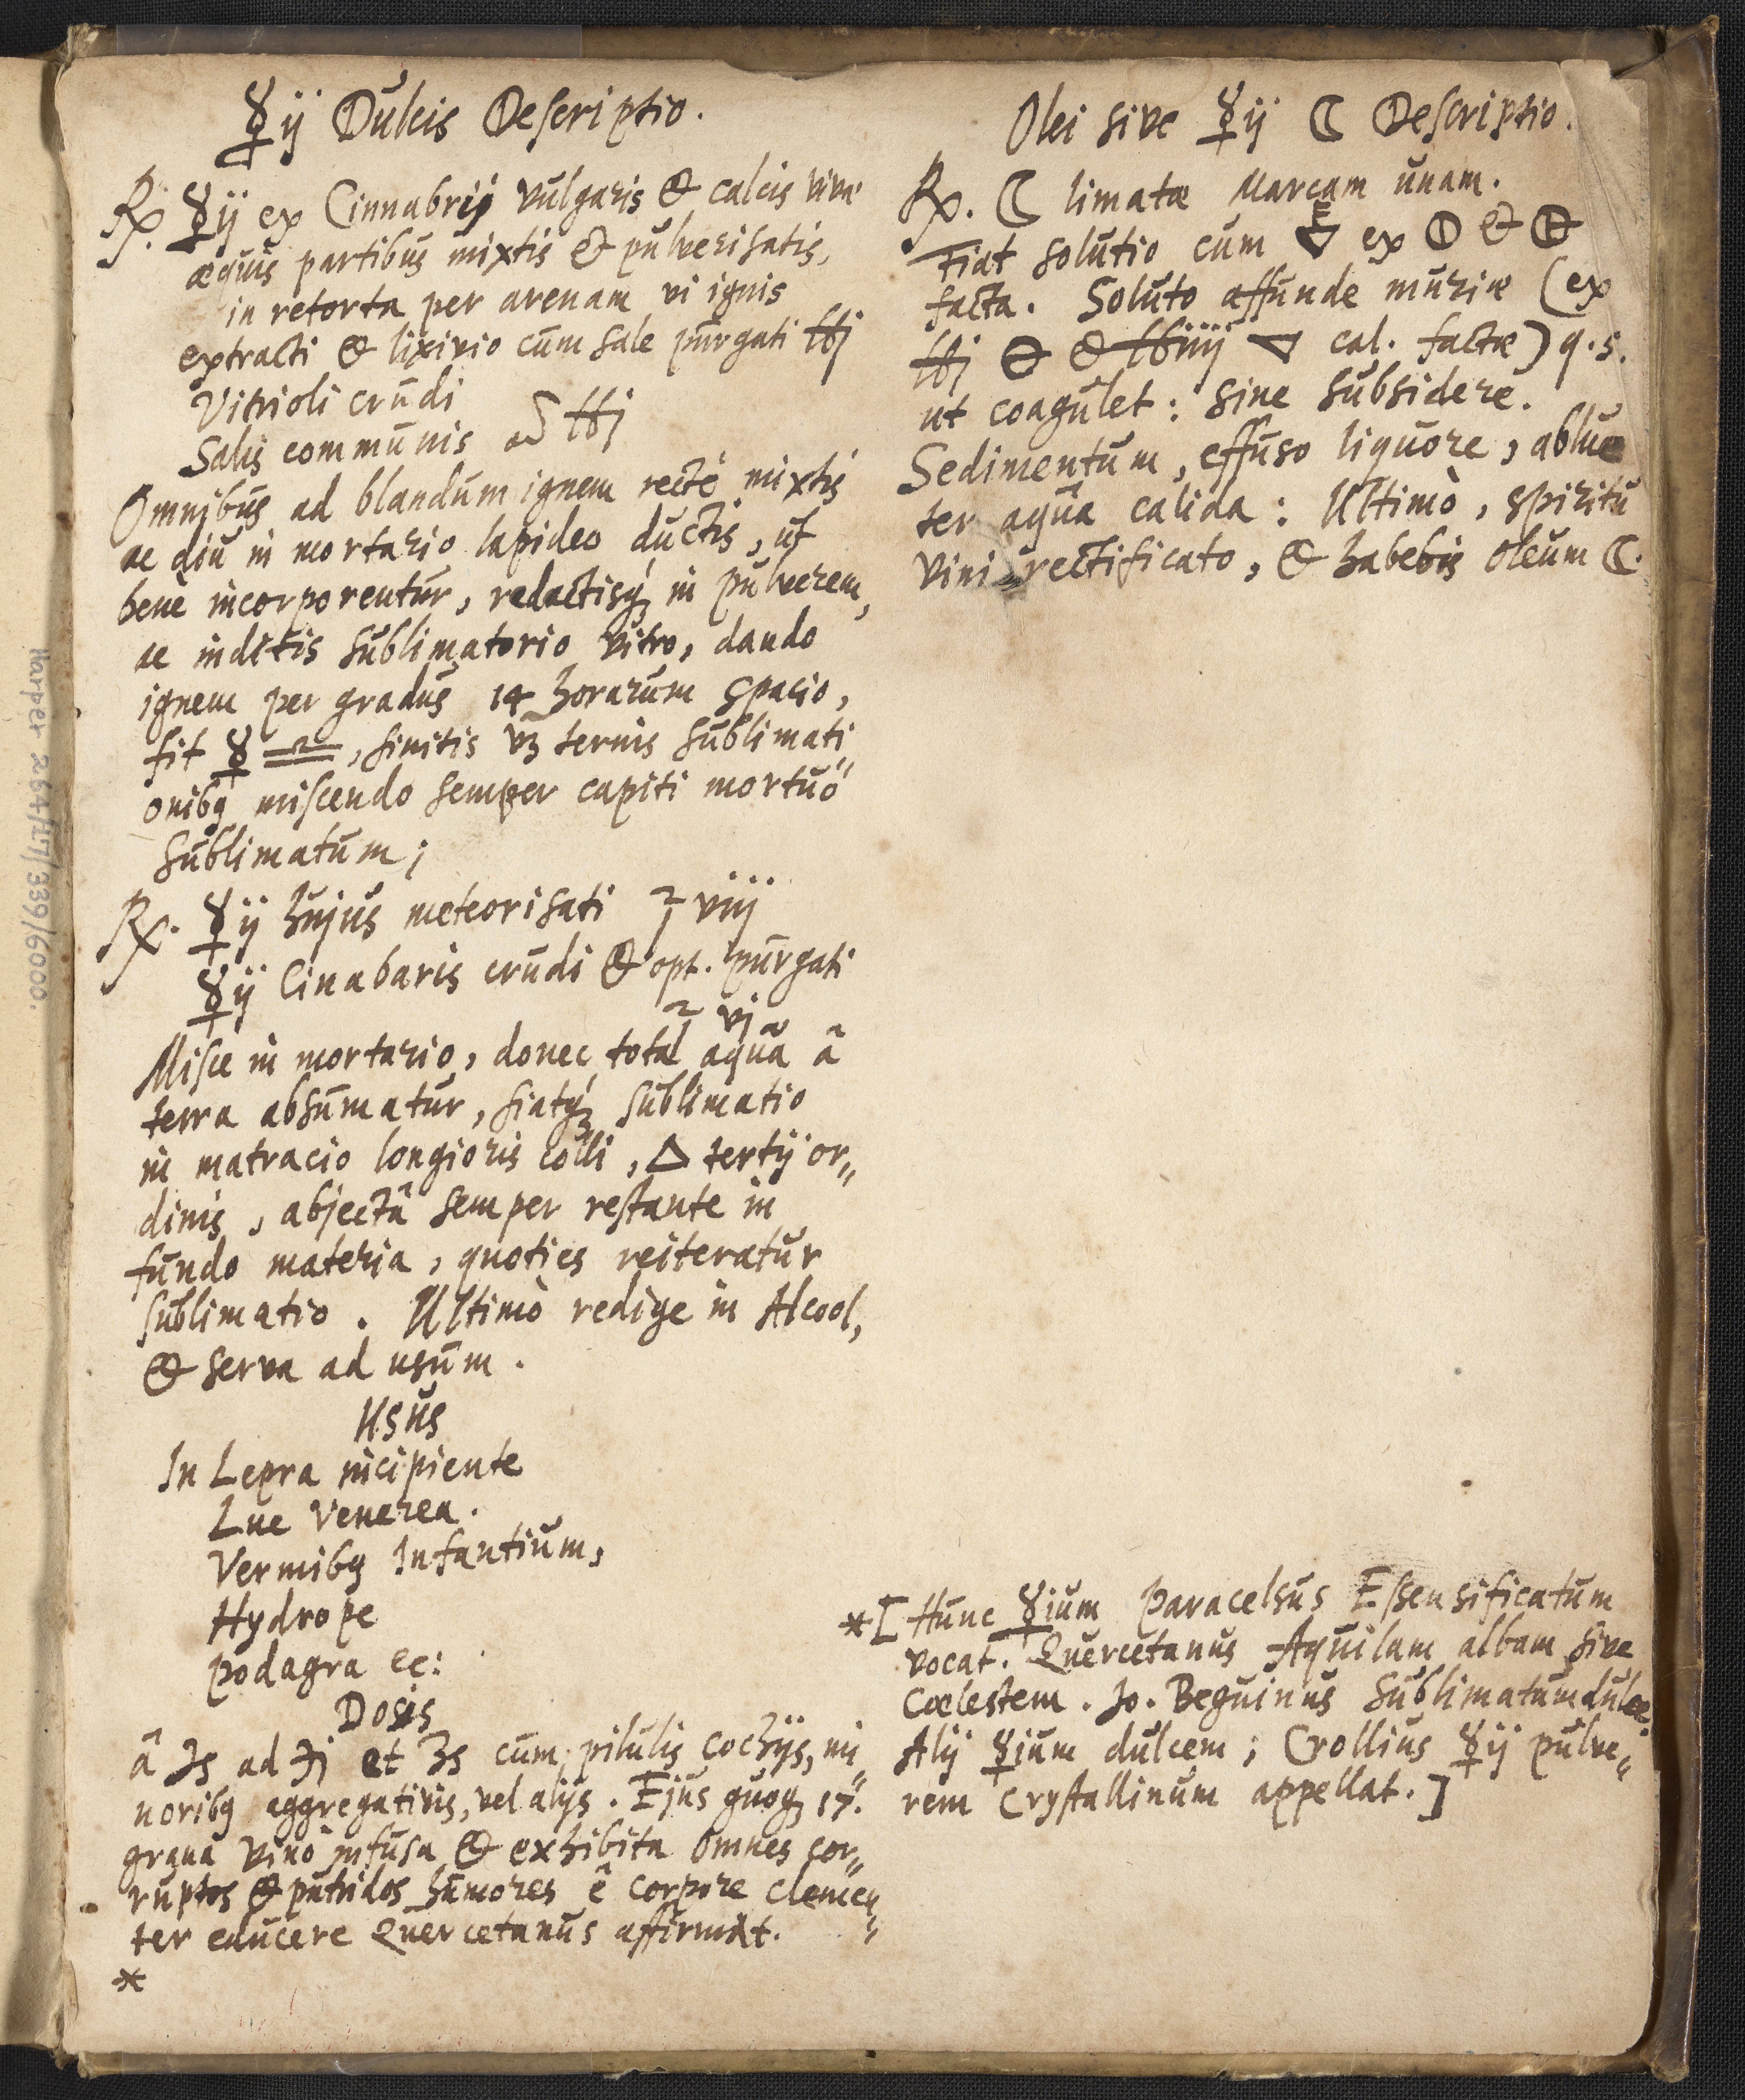 ☿ij Dulcis Descriptio.
℞. ☿ij ex Cinnabrij vulgaris & calcis vivæ
æquis partibus mixtis & pulverisatis,
in retorta per arenam vi ignis
extracti & lixivio cum sale purgati ℔j
Vitrioli crudi
Salis communis aā ℔j
Omnibus ad blandum ignem rectè mixtis
ac diu in mortario lapideo ductis, ut
benè incorporentur, redactisq́ꝫ in pulverem,
ac inditis sublimatorio vitro, dando
ignem per gradus 14 horarum spacio,
fit ☿ , finitis vꝫ ternis sublimati„
onibꝯ miscendo semper capiti mortuo
sublimatum;
℞. ☿ij hujus meteorisati ℥ viij
☿ij Cinabaris crudi & opt. purgati
℥ vj
Misce in mortario, donec tota aquâ â
terra absumatur, fiatq́ꝫ sublimatio
in matracio longioris colli, △ tertij or„
dinis, abjectâ semper restante in
fundo materia, quoties reiteratur
sublimatio. Ultimò redige in Alcool,
& serva ad usum.
Usus
In Lepra incipiente
Lue Venerea.
Vermibꝯ Infantium,
Hydrope
podagra &c:
Dosis
â ℈s ad ℈j et ʒs cum pilulis cochijs, mi„
noribꝯ aggregativis, vel alijs. Ejus quoqꝫ 17.
grana vino infusa & exhibita omnes cor„
ruptos & putridos humores ê corpore clemen„
ter educere Quercetanus affirmat.
*
Olei sive ☿ij ☾ Descriptio.
℞. ☾ limatæ Marcam unam.
Fiat solutio cum 🜅 ex 🜕 & 🜖
facta. Soluto affunde muriæ (ex
℔j 🜔 & ℔iiij ▽ cal. factæ) q.s.
ut coagulet: sine subsidere.
Sedimentum, effuso liquore, ablue
ter aquâ calida: Ultimò, spiritu
vini rectificato, & habebis oleum ☾.
*[Hunc ☿ium Paracelsus Essensificatum
vocat. Quercetanus Aquilam albam sive
Cœlestem. Jo. Beguinus Sublimatum dulce.
Alij ☿ium dulcem; Crollius ☿ij pulve„
rem Crystallinum appellat.]
Harper 264/17/339/6000.